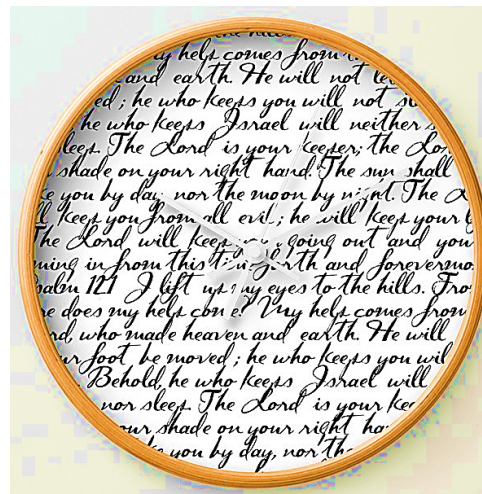 the hills
my help comes from
and earth. He will not let
ed; he who keeps you will not sl
he who keeps Israel will neither s
sleep. The Lord is your keeper; the Lo
shade on your right hand. The sun shall
you by day nor the moon by night. The L
ll keep you from all evil; he will keep your l
The Lord will keep your going out and you
ming in from this time forth and forevermo
salm 121 I lift up my eyes to the hills. Fro
re does my help come? My help comes from
rd, who made heaven and earth. He will
ur foot be moved; he who keeps you wil
Behold, he who keeps Israel will
nor sleep. The Lord is your kee
your shade on your right ha
you by day, nor the